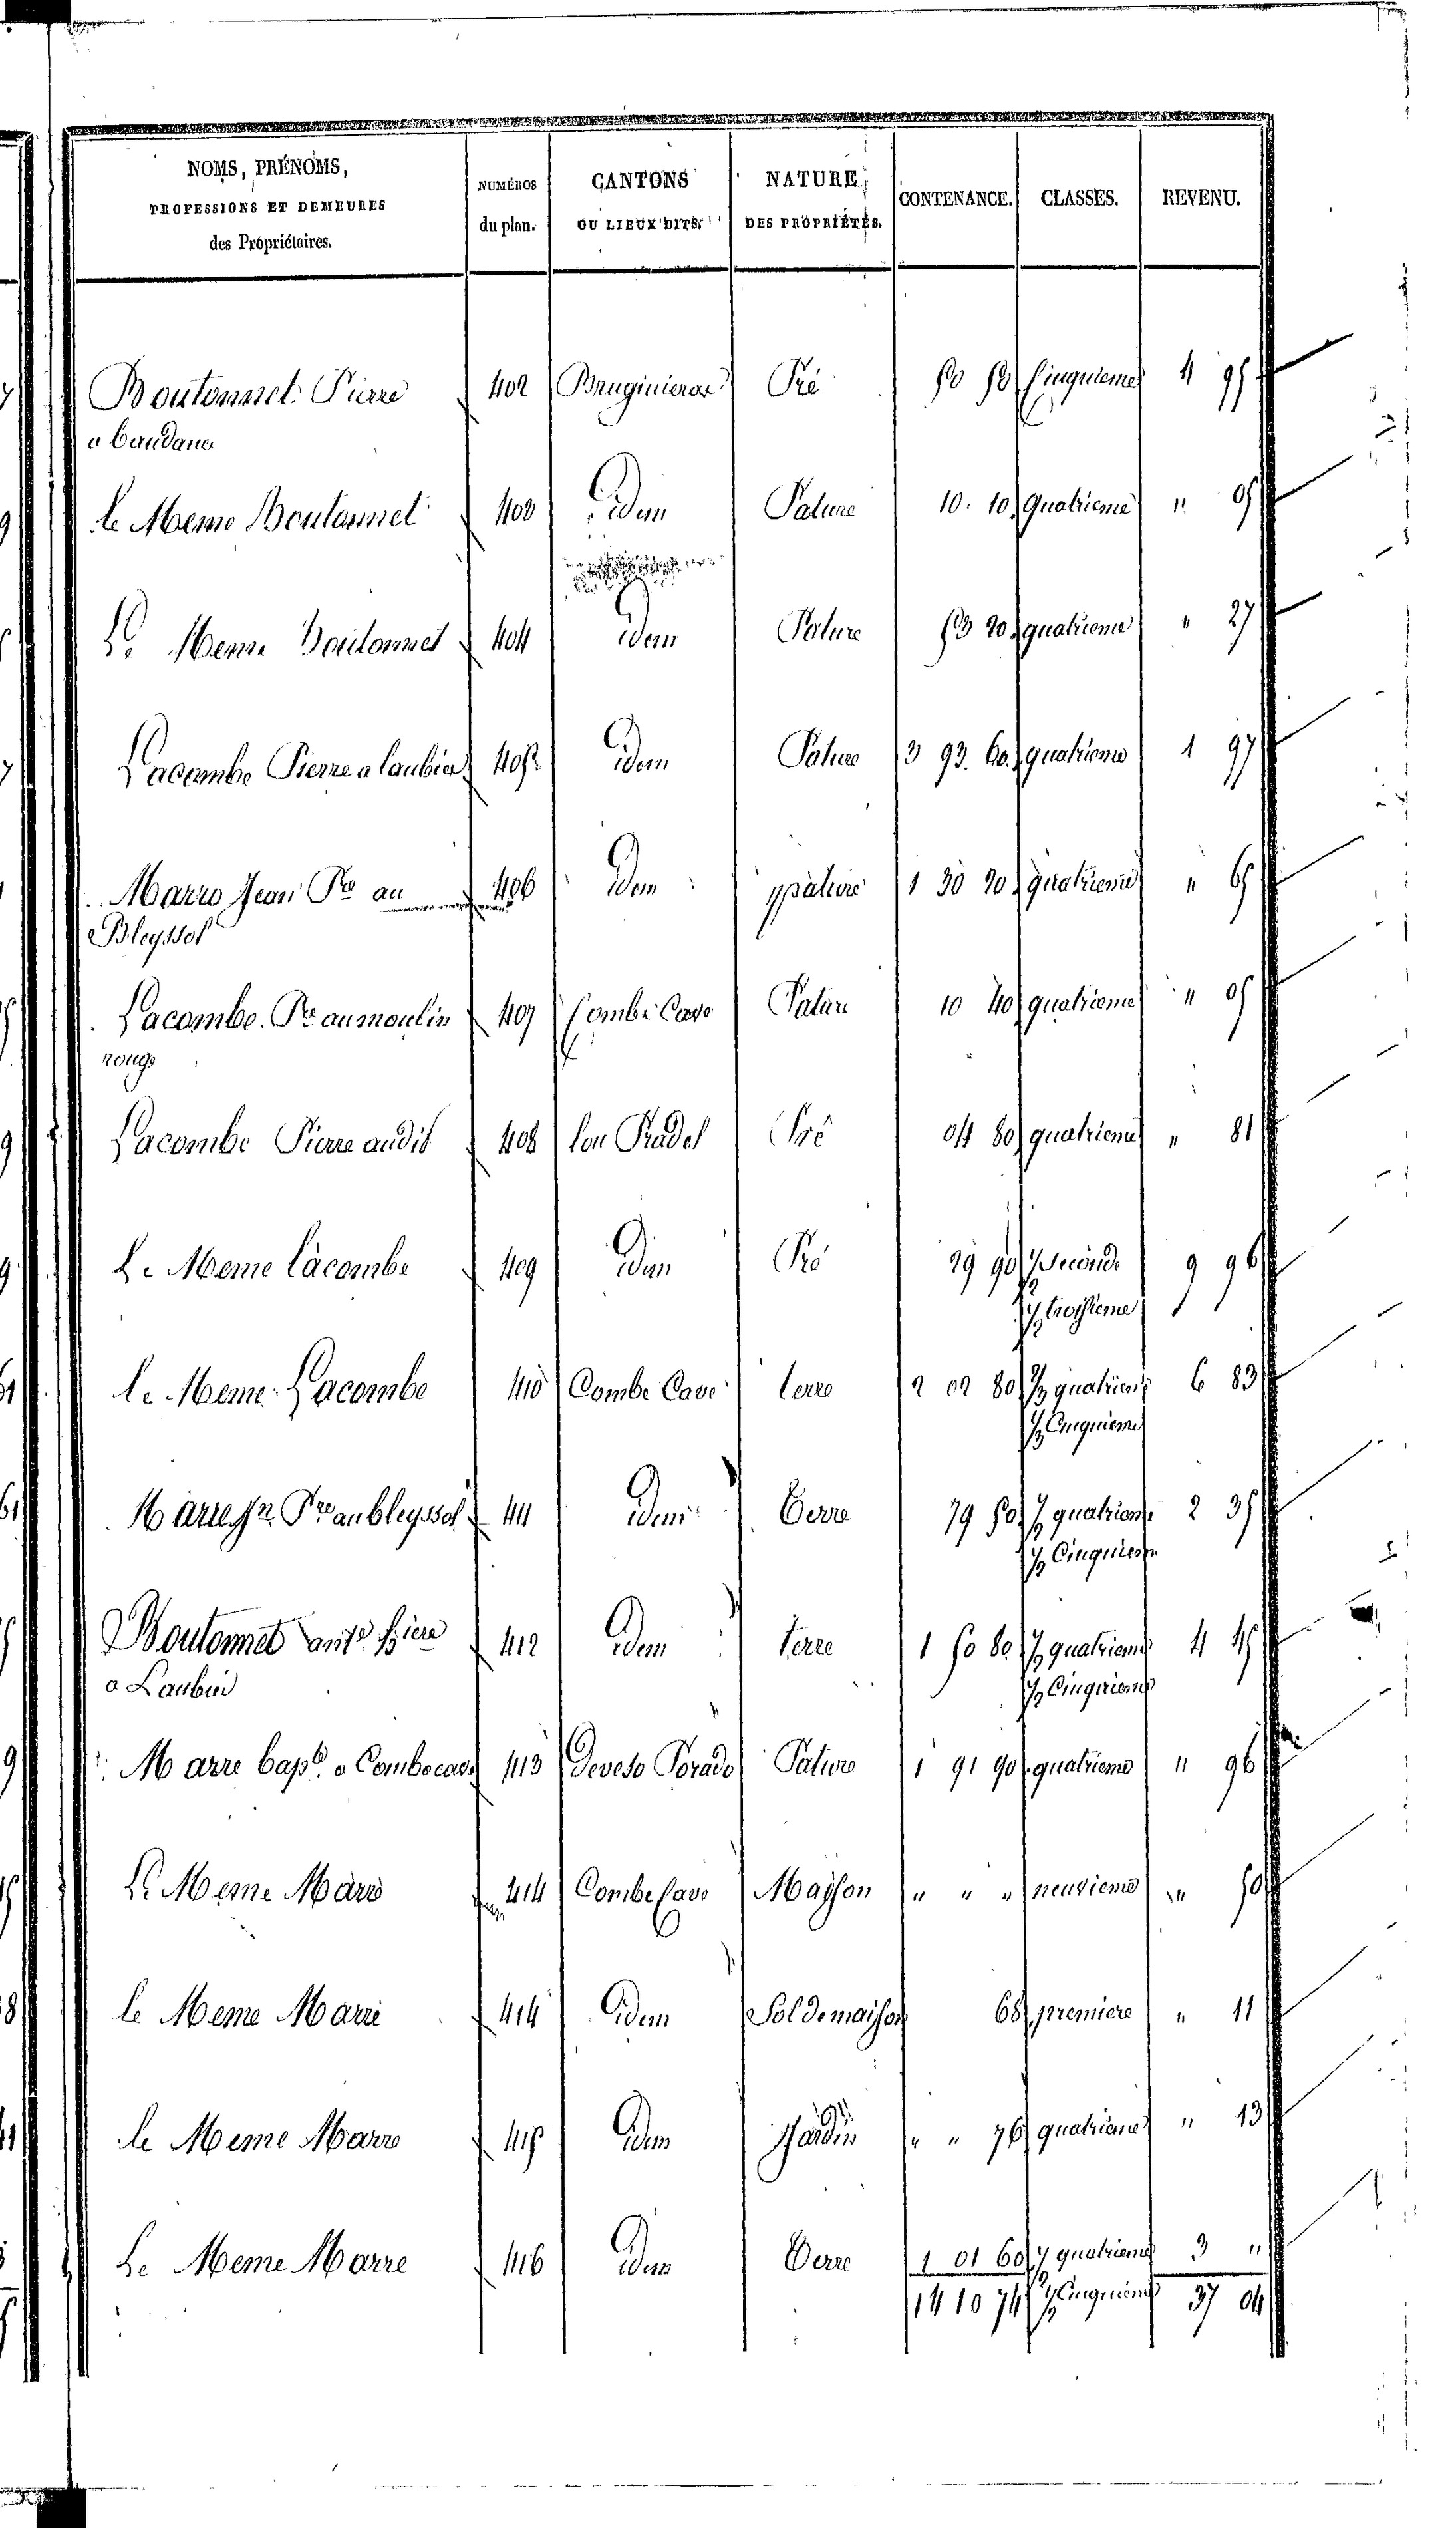 NOMS, PRÉNOMS,
PROFESSIONS ET DEMEURES
des Propriétaires.
NUMÉROS
du plan.
CANTONS
OU LIEUX DITS.
NATURE
DES PROPRIÉTÉS.
CONTENANCE.
CLASSES.
REVENU.
Boutonnet Pierre 402 Pré 50 50 Cinquieme 4 95
le Meme Boutonnet 403 idem Pature 10. 10 quatrieme " 05
Le Meme Boutonnet 404 idem Pature 53 20 quatrieme " 27
Lacombe Pierre a laubie 405 idem Pature 3 93. 60. quatrieme 1 97
Marre Jean Pre au 406 idem pature 1 30 20 quatrieme " 65
Bleyssol
Lacombe Pre au moulin 407 Combe Cave Pature 10 40 quatrieme " 05
rouge
Lacombe Pierre audit 408 lou Pradel Pré 04 80 quatrieme " 81
Le Meme lacombe 409 idem Pré 29 90 ½ seconde 9 96
½ troisieme
le Meme Lacombe 410 Combe Cave terre 2 02 80 ⅔ quatrieme 6 83
⅓ Cinquieme
Marre Jn Pre au bleyssol 411 idem Terre 79 50 ½ quatrieme 2 35
½ Cinquieme
Boutonnet ante 412 idem terre 1 50 80 ½ quatrieme 4 45
a Laubie ½ Cinquieme
Marre bapte a Combecave 413 Deveso Pature 1 91 90 quatrieme " 96
Le Meme Marre 414 Combe Cave Maison " " " neuvieme " 50
le Meme Marre 414 idem Sol de maison 68 premiere " 11
le Meme Marre 415 idem Jardin " " 76 quatrieme " 13
Le Meme Marre 416 idem Terre 1 01 60 ½ quatrieme 3 "
14 10 74 ½ Cinquieme 37 04